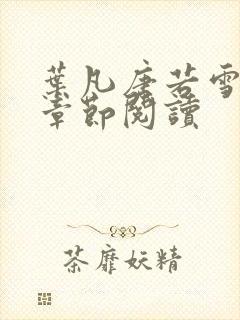 葉凡唐若雪
章節閱讀
荼靡妖精